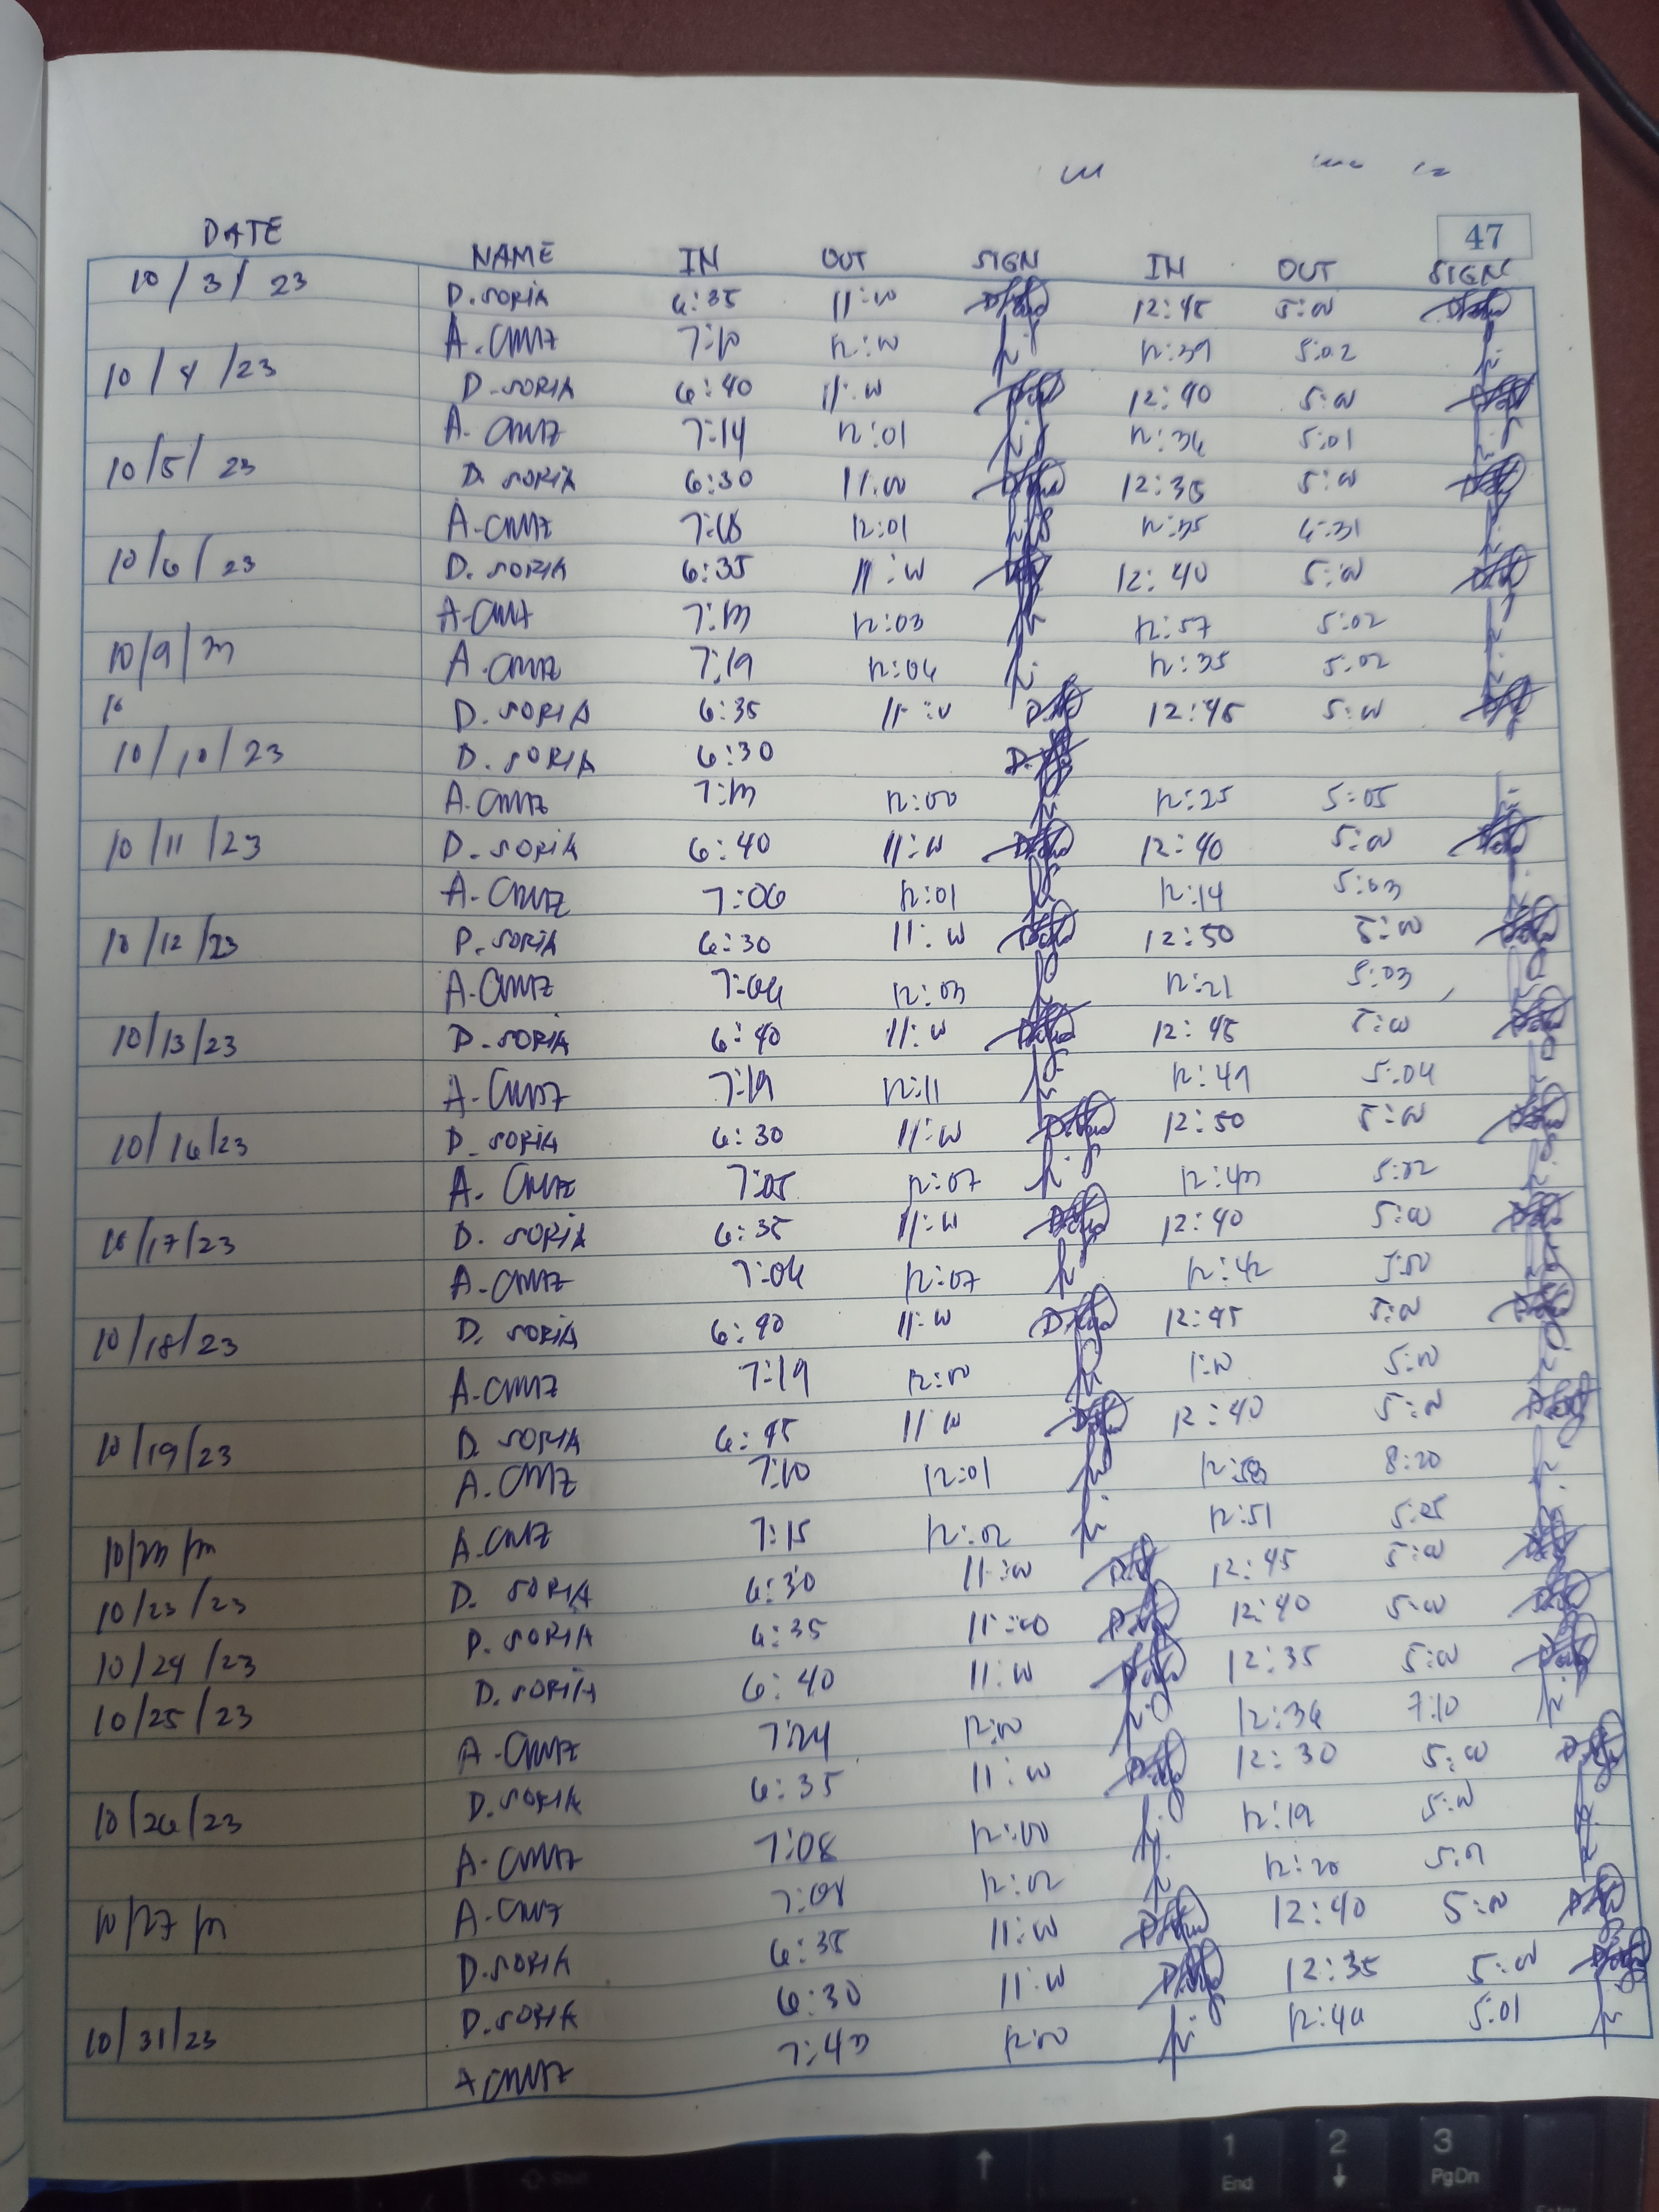 47
DATE NAME IN OUT SIGN IN OUT SIGN
10/3/23 D. SORIA 6:35 11:00 12:45 5:00
A. CRUZ 7:10 12:00 12:39 5:02
10/4/23 D. SORIA 6:40 11:00 12:40 5:00
A. CRUZ 7:14 12:01 12:36 5:01
10/5/23 D. SORIA 6:30 11:00 12:35 5:00
A. CRUZ 12:01 12:35 6:31
10/6/23 D. SORIA 6:35 11:00 12:40 5:00
A. CRUZ 12:03 12:57 5:02
10/9/23 A. CRUZ 7:19 12:04 12:35 5:02
D. SORIA 6:35 11:00 12:45 5:00
10/10/23 D. SORIA 6:30
A. CRUZ 12:00 12:25 5:05
10/11/23 D. SORIA 6:40 11:00 12:40 5:00
A. CRUZ 7:06 12:01 12:14 5:03
10/12/23 D. SORIA 6:30 11:00 12:50 5:00
A. CRUZ 12:03 12:21 5:03
10/13/23 D. SORIA 6:40 11:00 12:45 5:00
A. CRUZ 7:19 12:11 12:49 5:04
10/16/23 D. SORIA 6:30 11:00 12:50 5:00
A. CRUZ 7:05 12:07 12:43 5:02
10/17/23 D. SORIA 6:35 11:00 12:40 5:00
A. CRUZ 12:07 12:42 5:00
10/18/23 D. SORIA 6:40 11:00 12:45 5:00
A. CRUZ 7:19 12:00 1:00 5:00
10/19/23 D. SORIA 6:45 11:00 12:40 5:00
A. CRUZ 7:10 12:01 12:58 8:20
10/23/23 A. CRUZ 7:15 12:02 12:51 5:25
10/23/23 D. SORIA 6:30 11:00 12:45 5:00
10/24/23 D. SORIA 6:35 11:00 12:40 5:00
10/25/23 D. SORIA 6:40 11:00 12:35 5:00
A. CRUZ 7:24 12:00 12:36 7:10
10/26/23 D. SORIA 6:35 11:00 12:30 5:00
A. CRUZ 7:08 12:00 12:19 5:00
10/27/23 A. CRUZ 12:02 12:20
D. SORIA 6:35 11:00 12:40 5:00
10/31/23 D. SORIA 6:30 11:00 12:35 5:00
A CRUZ 7:43 12:00 5:01
1
End
2
3
PgDn